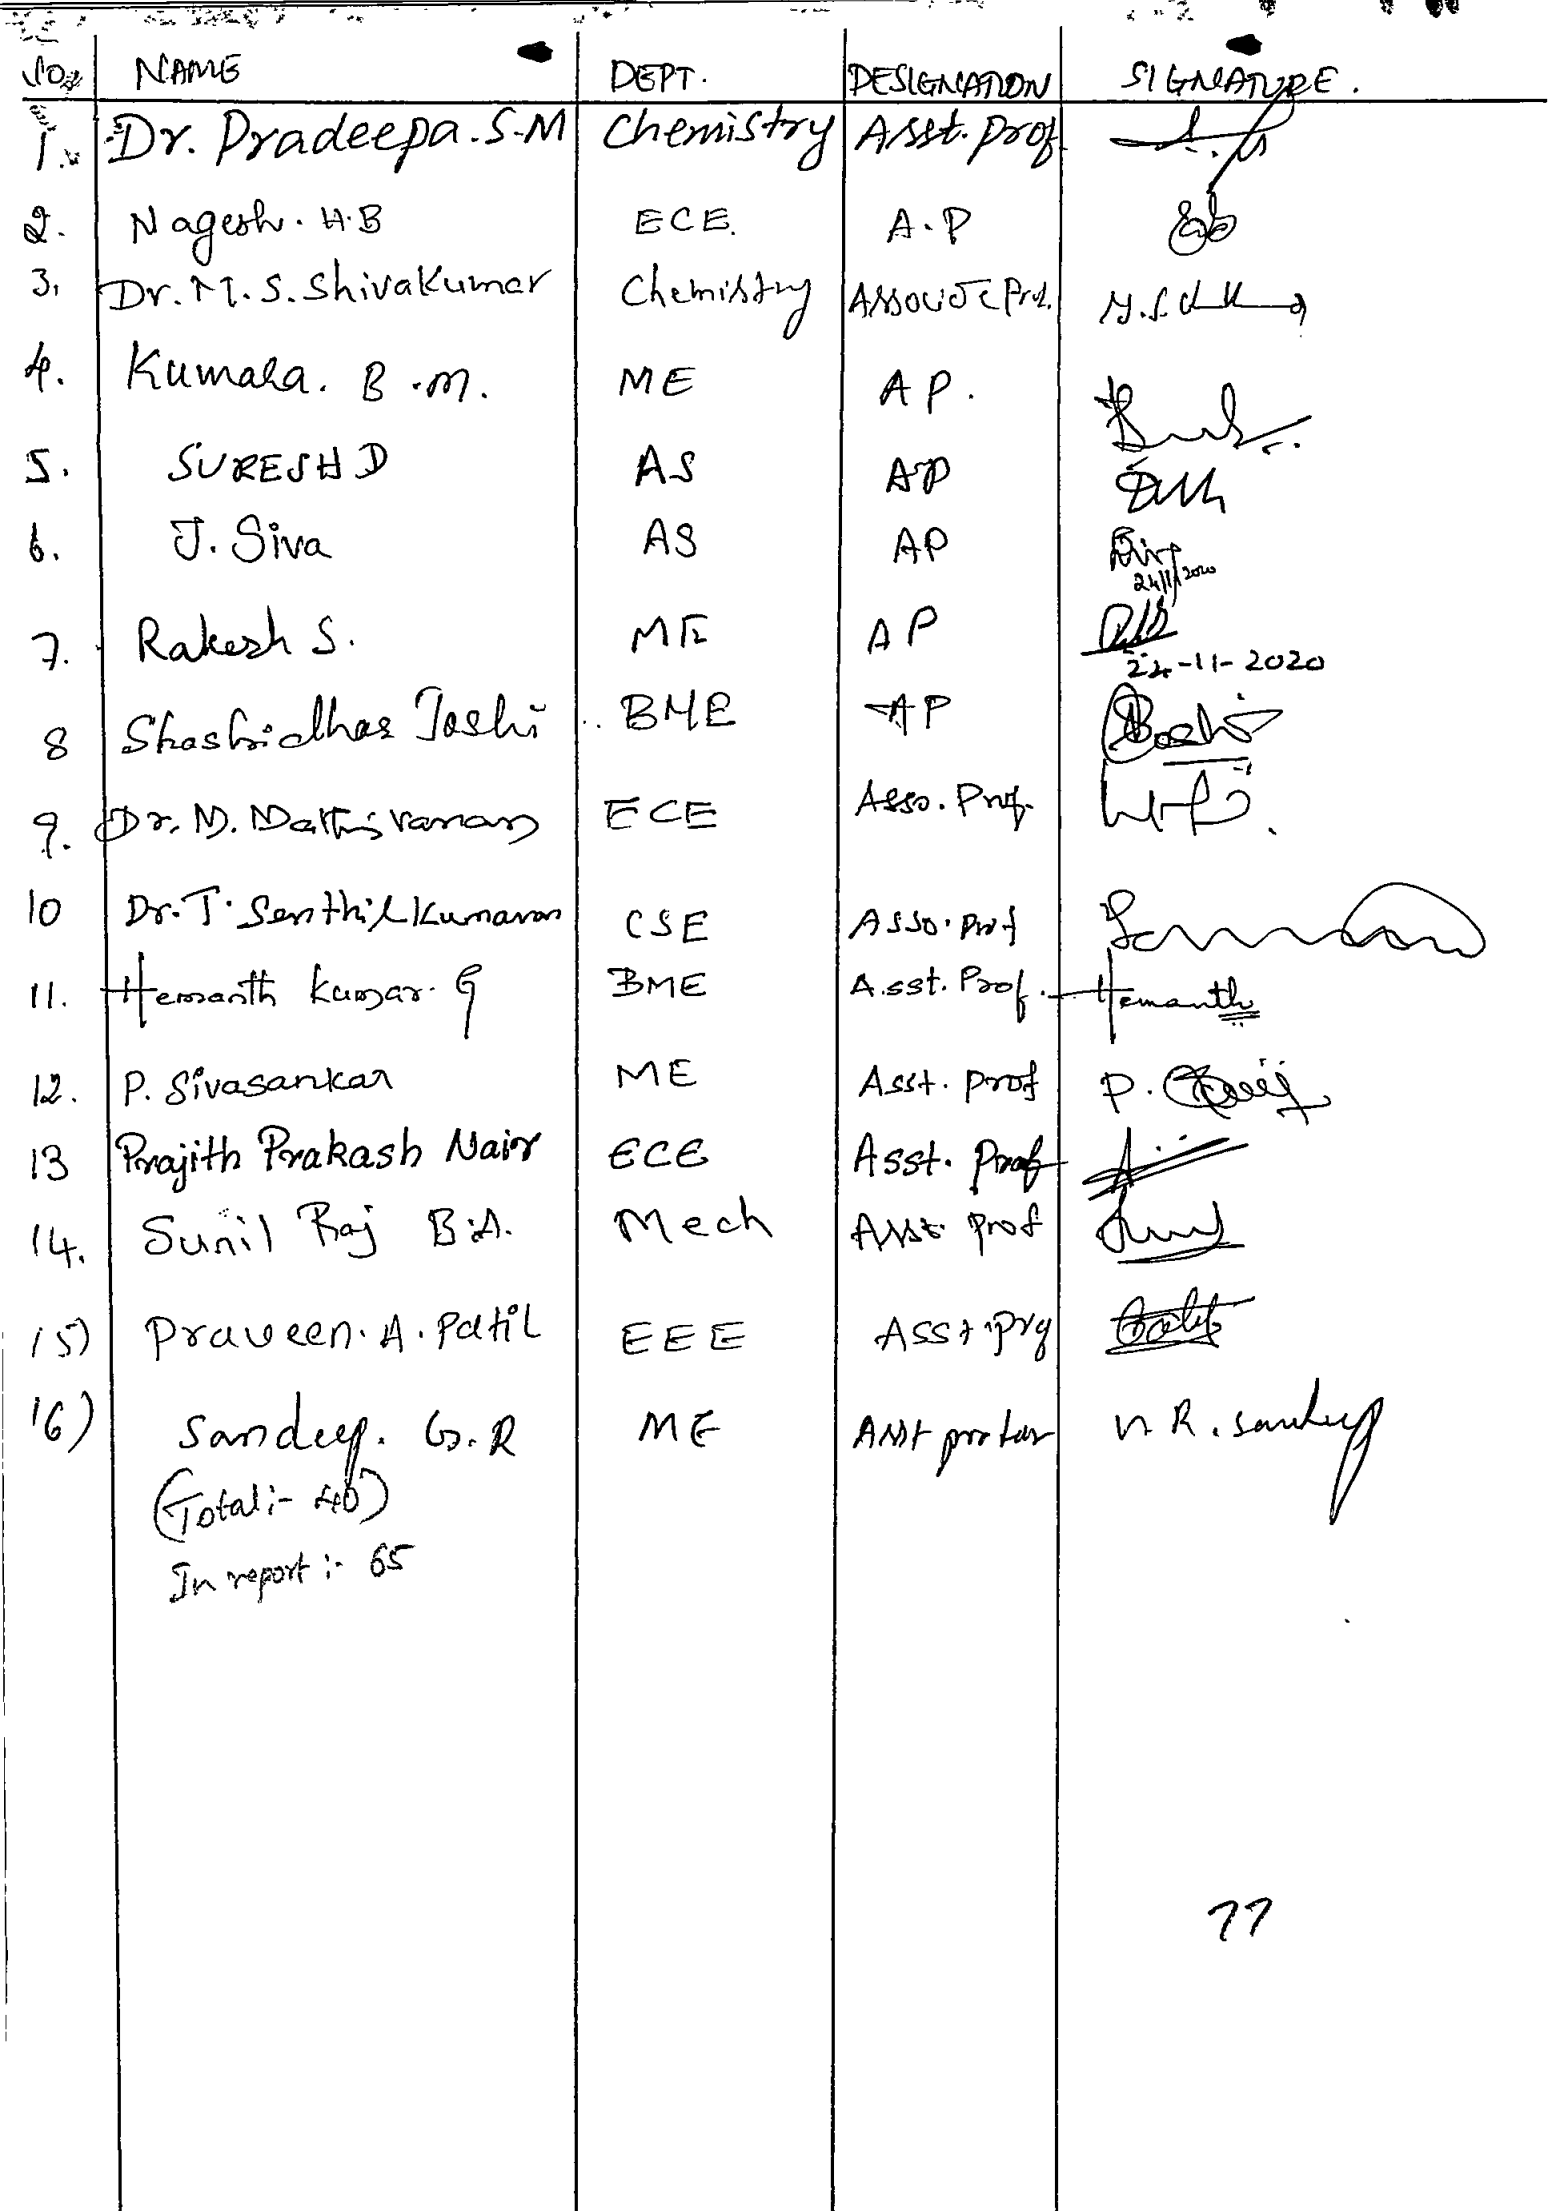 NAME DEPT. DESIGNATION SIGNATURE.
1. Dr. Pradeepa. S-M Chemistry Asst. prof
2. Nagesh. H.B ECE. A.P
3. Dr. M. S. Shivakumar Chemistry Associate Prof.
4. Kumara. B.M. ME AP.
5. SURESH D AS AP
6. J. Siva AS AP
24/11/2020
7. Rakesh S. ME AP
24-11-2020
8 Shashidhar Joshi BME AP
9. Dr. M. Mathivanan ECE Asso. Prof.
10 Dr. T. Senthil Kumaran CSE Asso. Prof
11. Hemanth Kumar. G BME Asst. Prof. Hemanth
12. P. Sivasankar ME Asst. Prof P.
13 Prajith Prakash Nair ECE Asst. Prof
14. Sunil Raj B.A. Mech Asst. prof
15) Praveen. A. Patil EEE Asst. prof
16) Sandeep. G.R ME Asst G.R. Sandeep
(Total :- 40)
In report :- 65
77